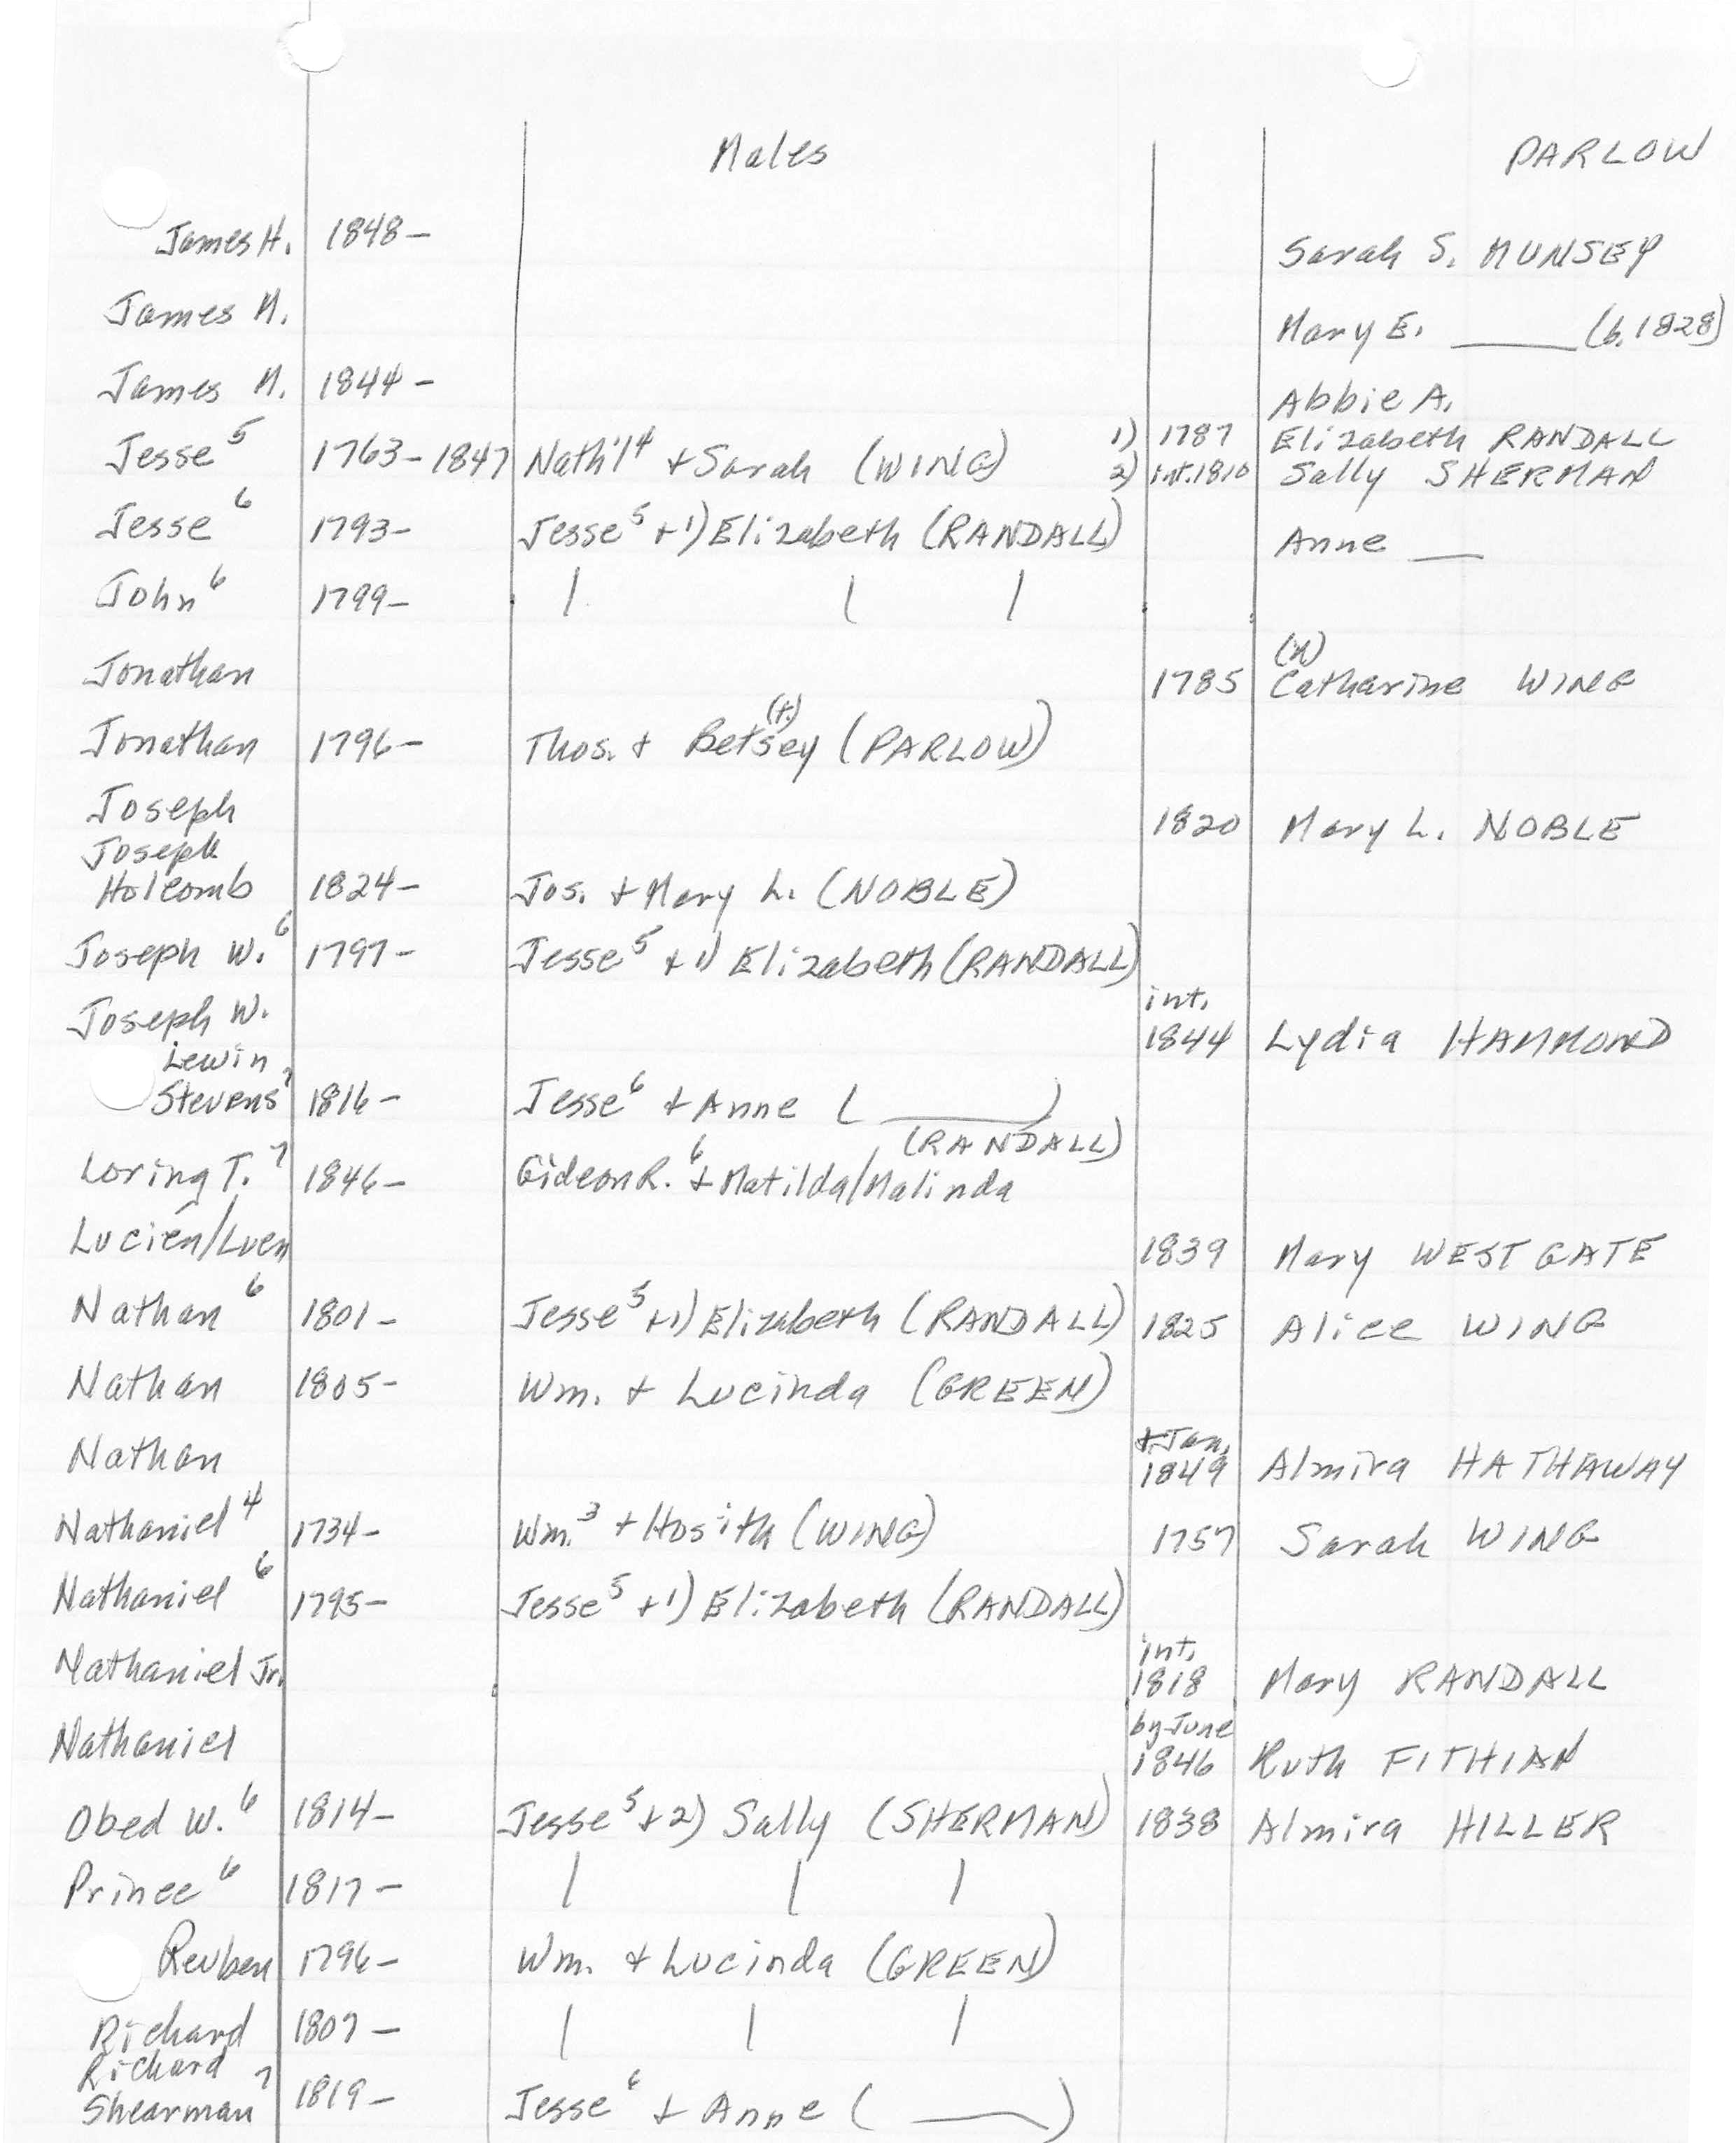 Males PARLOW
James H. 1848- Sarah S. MUNSEY
James M. Mary E. ____ (b. 1828)
James M. 1844- Abbie A.
Jesse⁵ 1763-1847 Nath'l⁴ + Sarah (WING) 1) 1787 Elizabeth RANDALL
2) int. 1810 Sally SHERMAN
Jesse⁶ 1793- Jesse⁵ + 1) Elizabeth (RANDALL) Anne __
John⁶ 1799- | | |
Jonathan 1785 Catharine (n) WING
Jonathan 1796- Thos. + Betsey (t.) (PARLOW)
Joseph 1820 Mary L. NOBLE
Joseph
Holcomb 1824- Jos. + Mary L. (NOBLE)
Joseph W.⁶ 1797- Jesse⁵ + 1) Elizabeth (RANDALL)
Joseph W. int. 1844 Lydia HAMMOND
Lewin
Stevens⁷ 1816- Jesse⁶ + Anne ( ____ )
Loring T.⁷ 1846- Gideon R.⁶ + Matilda/Malinda (RANDALL)
Lucien/Luen 1839 Mary WESTGATE
Nathan⁶ 1801- Jesse⁵ + 1) Elizabeth (RANDALL) 1825 Alice WING
Nathan 1805- Wm. + Lucinda (GREEN)
Nathan Jan. 1849 Almira HATHAWAY
Nathaniel⁴ 1734- Wm.³ + Hosith (WING) 1757 Sarah WING
Nathaniel⁶ 1795- Jesse⁵ + 1) Elizabeth (RANDALL)
Nathaniel Jr. int. 1818 Mary RANDALL
Nathaniel by June 1846 Ruth FITHIAN
Obed W.⁶ 1814- Jesse⁵ + 2) Sally (SHERMAN) 1838 Almira HILLER
Prince⁶ 1817- | | |
Reuben 1796- Wm. + Lucinda (GREEN)
Richard 1807- | | |
Richard
Shearman⁷ 1819- Jesse⁶ + Anne ( ____ )